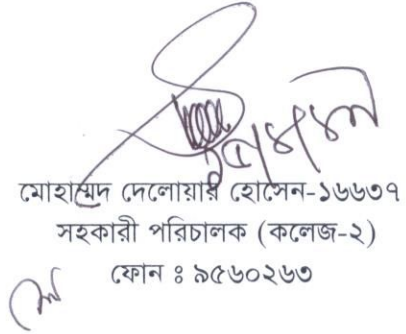 মোহাম্মেদ দেলোয়ার হোসেন-১৬৬৩৭
সহকারী পরিচালক (কলেজ-২)
ফোন ঃ ৯৫৬০২৬৩